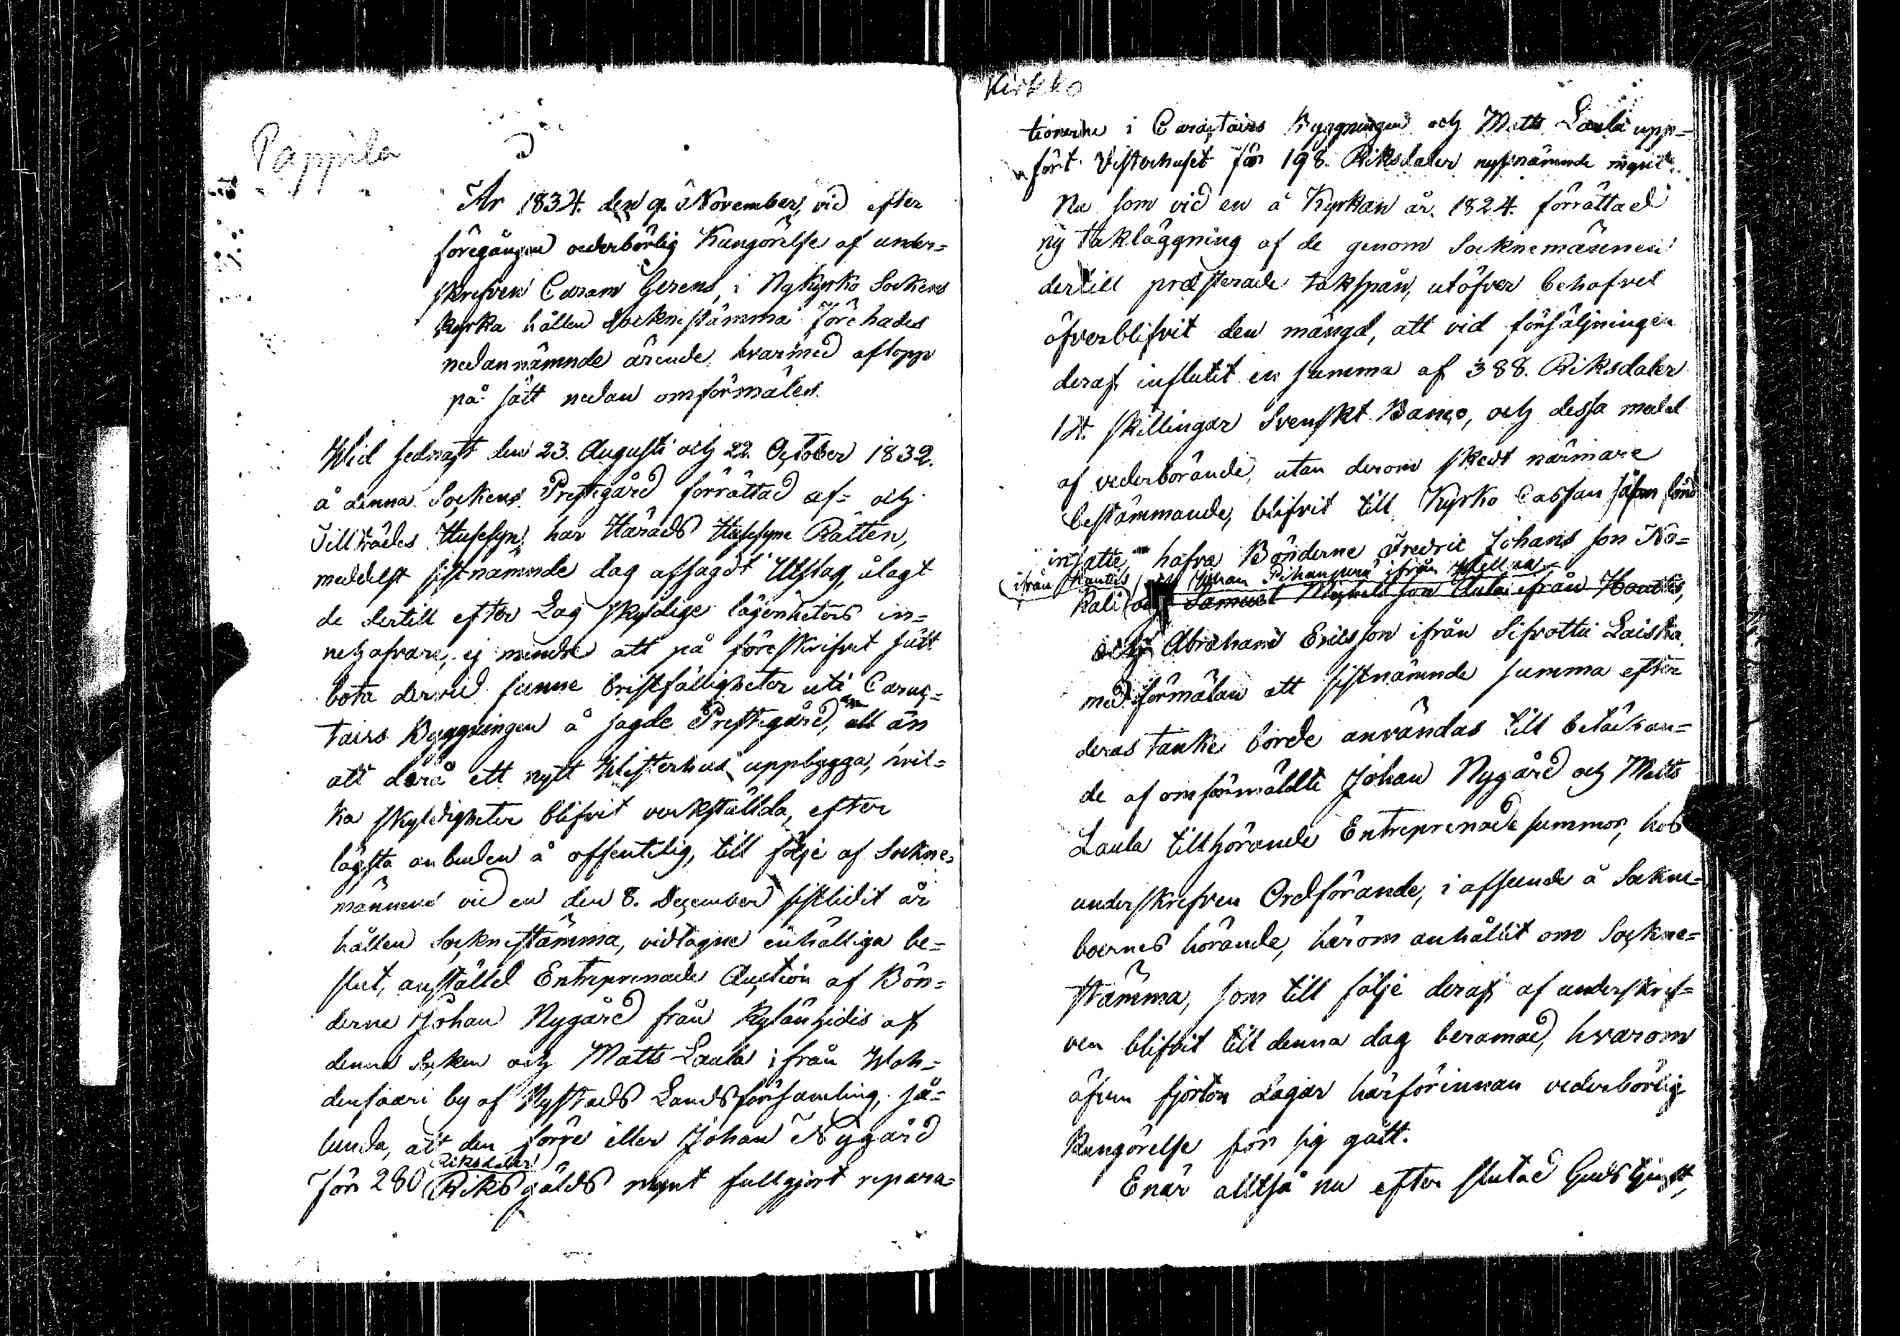 Pappila
År 1834. den 9. November, vid efter
föregången vederbörlig Kungörelse af under-
skrefven Curam Gerens, i Nykyrko Sockens
kyrka hållen Sockenstämma förehades
nedannämnde ärende, hvarmed aflopp
på sätt nedan omförmäles.
Wid sednast den 23. Augusti och 22. October 1832.
å denna Sockens Prestegård förrättad af- och
Tillträdes Husesyn, har Härads Husesyns Rätten,
medelst sistnämnde dag afsagdt Utslag, ålagt
de dertill efter Lag skyldige lägenheters in-
nehafvare, ej mindre att på föreskrifvet sätt
bota dervid funne bristfälligheter uti Carac-
tairs Byggningen å sagde Prestegård, än
att derå ett nytt Wisterhus uppbygga, hvil-
ka skyldigheter blifvit verkställda, efter
lägsta anbuden å offentelig, till följe af Sockne-
männens vid en den 8. December sistlidit år
hållen Socknestämma, vidtagne enhälliga be-
slut, anställd Entreprenade Auction af Bön-
derne Johan Nygård från Kylänhidis af
denna Socken och Matts Laula ifrån Woh-
densaari by af Nystads Landsförsamling, så-
lunda, att den förre eller Johan Nygård
Riksdaler
för 280 Riksgälds mynt fullgjort repara-
Kirkko
tionerne i Caractairs Byggningen och Matts Laula upp-
fört Visterhuset för 198. Riksdaler nyssnämnde mynt.
Nu som vid en å Kyrkan år 1824. förrättad
ny takläggning af de genom Socknemännen
dertill præsterade takspån, utöfver behofvet
öfverblifvit den mängd, att vid försäljningen
deraf influtit en summa af 388. Riksdaler
skillingar Svenskt Banco, och dessa medel
af vederbörande, utan derom skedt närmare
bestämmande, blifvit till Kyrko Cassan såsom lån
insatte, hafva Bönderne Fredric Johans son No-
ifrån Kantis Johan ifrån
kali och Samuel son ifrån
och Abraham Ericsson ifrån Sifrottu Laiska
med förmälan att sistnämnde summa efter
deras tanke borde användas till betäckan-
de af omförmäldte Johan Nygård och Matts
Laula tillhörande Entreprenade summor, hos
underskrefven Ordförande, i afseende å Sockne-
boernes hörande, härom anhållit om Sockne-
stämma, som till följe deraf af underskref-
ven blifvit till denna dag beramad, hvarom
äfven fjorton dagar härförinnan vederbörlig
Kungörelse för sig gått.
Enär alltså nu efter slutad Gudstjenst,